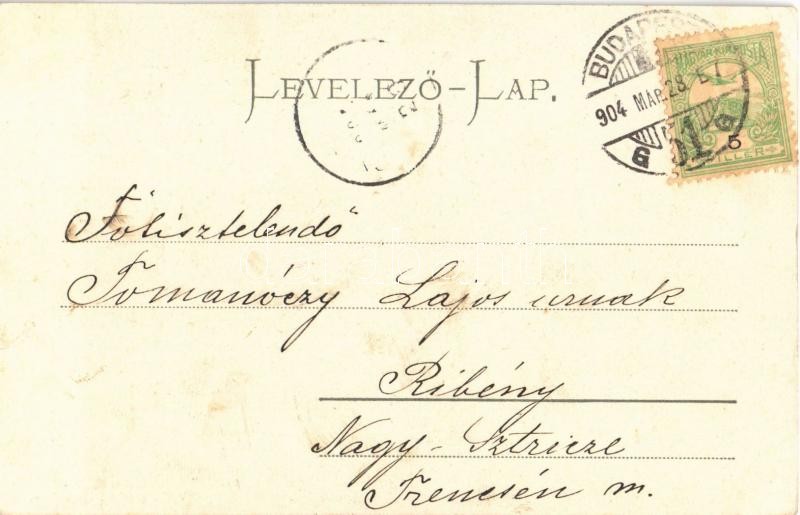 LEVELEZŐ-LAP.
BUDAPEST
904 MAR 28
MAGYAR KIR. POSTA
5
FILLER
Főtisztelendő
Tomanóczy Lajos urnak
Ribény
Nagy-Sztricze
Trencsén m.